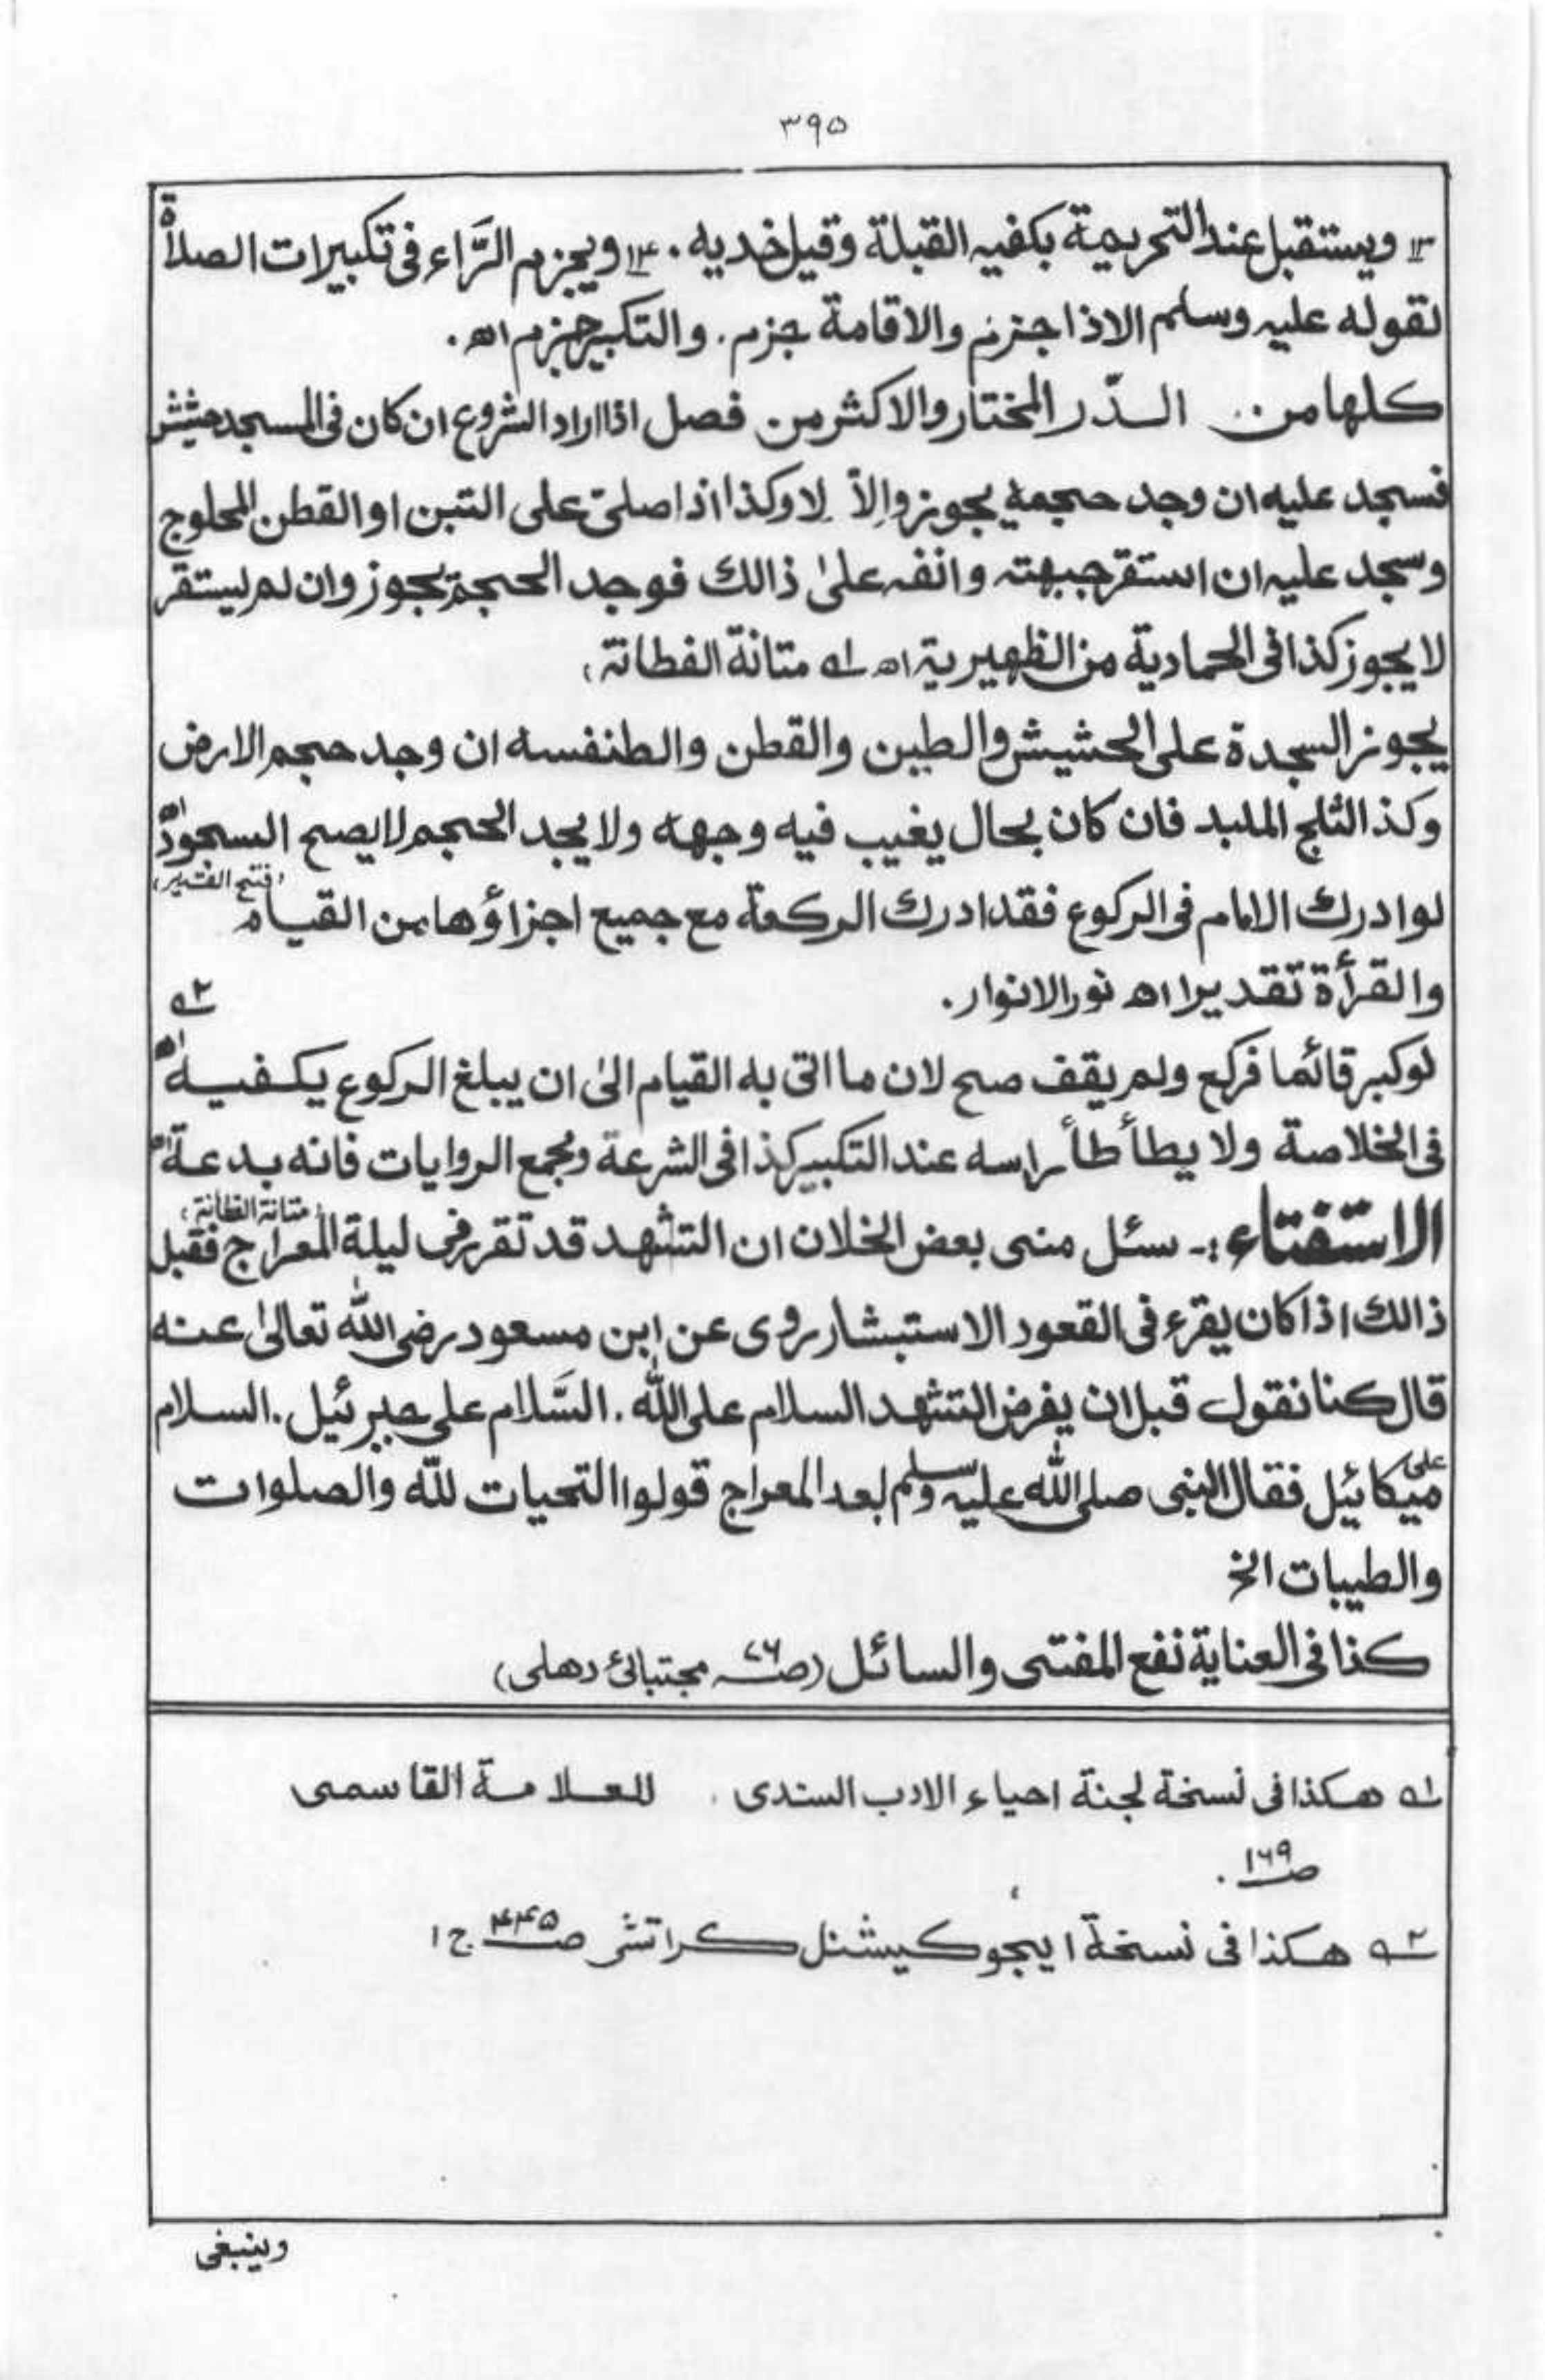 ۳۹۵
۱۳ ويستقبل عند التحريمة بكفيه القبلة وقيل خديه . ۱۴ ويجزم الرَّاء فى تكبيرات الصلاة
لقوله عليه وسلم الاذا اجزم والاقامة جزم . والتكبير جزم اه .
كلها من . الدّر المختار والاكثر من فصل اذا اراد الشروع ان كان فى المسجد حشيش
فسجد عليه ان وجد حجمه يجوز والاّ لا وكذا اذا صلى على التبن او القطن المحلوج
وسجد عليه ان استقر جبهته وانفه علىٰ ذالك فوجد الحجم يجوز وان لم ليستقر
لا يجوز كذا فى الحمادية من الظهيرية اه ۱ه متانة الفطانة ،
يجوز السجدة على الحشيش والطين والقطن والطنفسه ان وجد حجم الارض
وكذ الثلج الملبد فان كان بحال يغيب فيه وجهه ولا يجد الحجم لا يصح السجود اه
(فتح القدير)
لو ادرك الامام فى الركوع فقد ادرك الركعة مع جميع اجزاؤها من القيام
والقرأة تقديرا اه نور الانوار . ۲ه
لو كبر قائما فركع ولم يقف صح لان ما اتى به القيام الىٰ ان يبلغ الركوع يكفيه اه
فى الخلاصة ولا يطأطأ راسه عند التكبير كذا فى الشرعة ومجمع الروايات فانه بدعة اه
(متانة الفطانة)
الاستفتاء :۔ سئل منى بعض الخلان ان التشهد قد تقرر فى ليلة المعراج فقبل
ذالك اذا كان يقرء فى القعود الاستبشار روى عن ابن مسعود رضى الله تعالىٰ عنه
قال كنا نقول قبل ان يفرض التشهد السلام على الله . السَّلام على جبرئيل . السلام
على ميكائيل فقال النبى صلى الله عليه وسلم بعد المعراج قولوا التحيات للّه والصلوات
والطيبات الخ
كذا فى العناية نفع المفتى والسائل (صـ ۷۶ مجتبائى دهلى)
۱ه هكذا فى نسخة لجنة احياء الادب السندى . للعلامة القاسمى
صـ ۱۶۹ .
۲ه هكذا فى نسخة ايجوكيشنل كراتشى صـ ۴۴۵ ج ۱
وينبغى